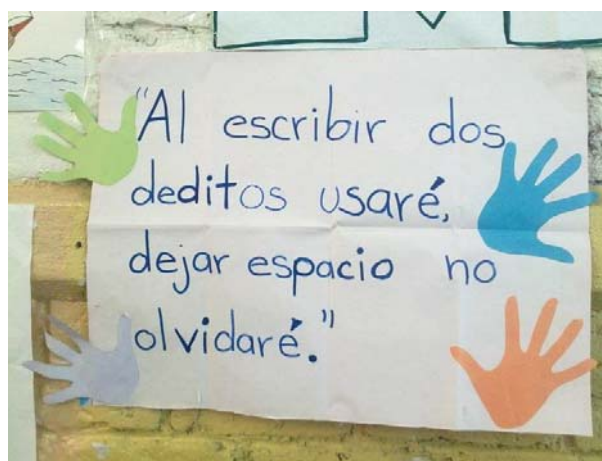 "Al escribir dos
deditos usaré,
dejar espacio no
olvidaré."